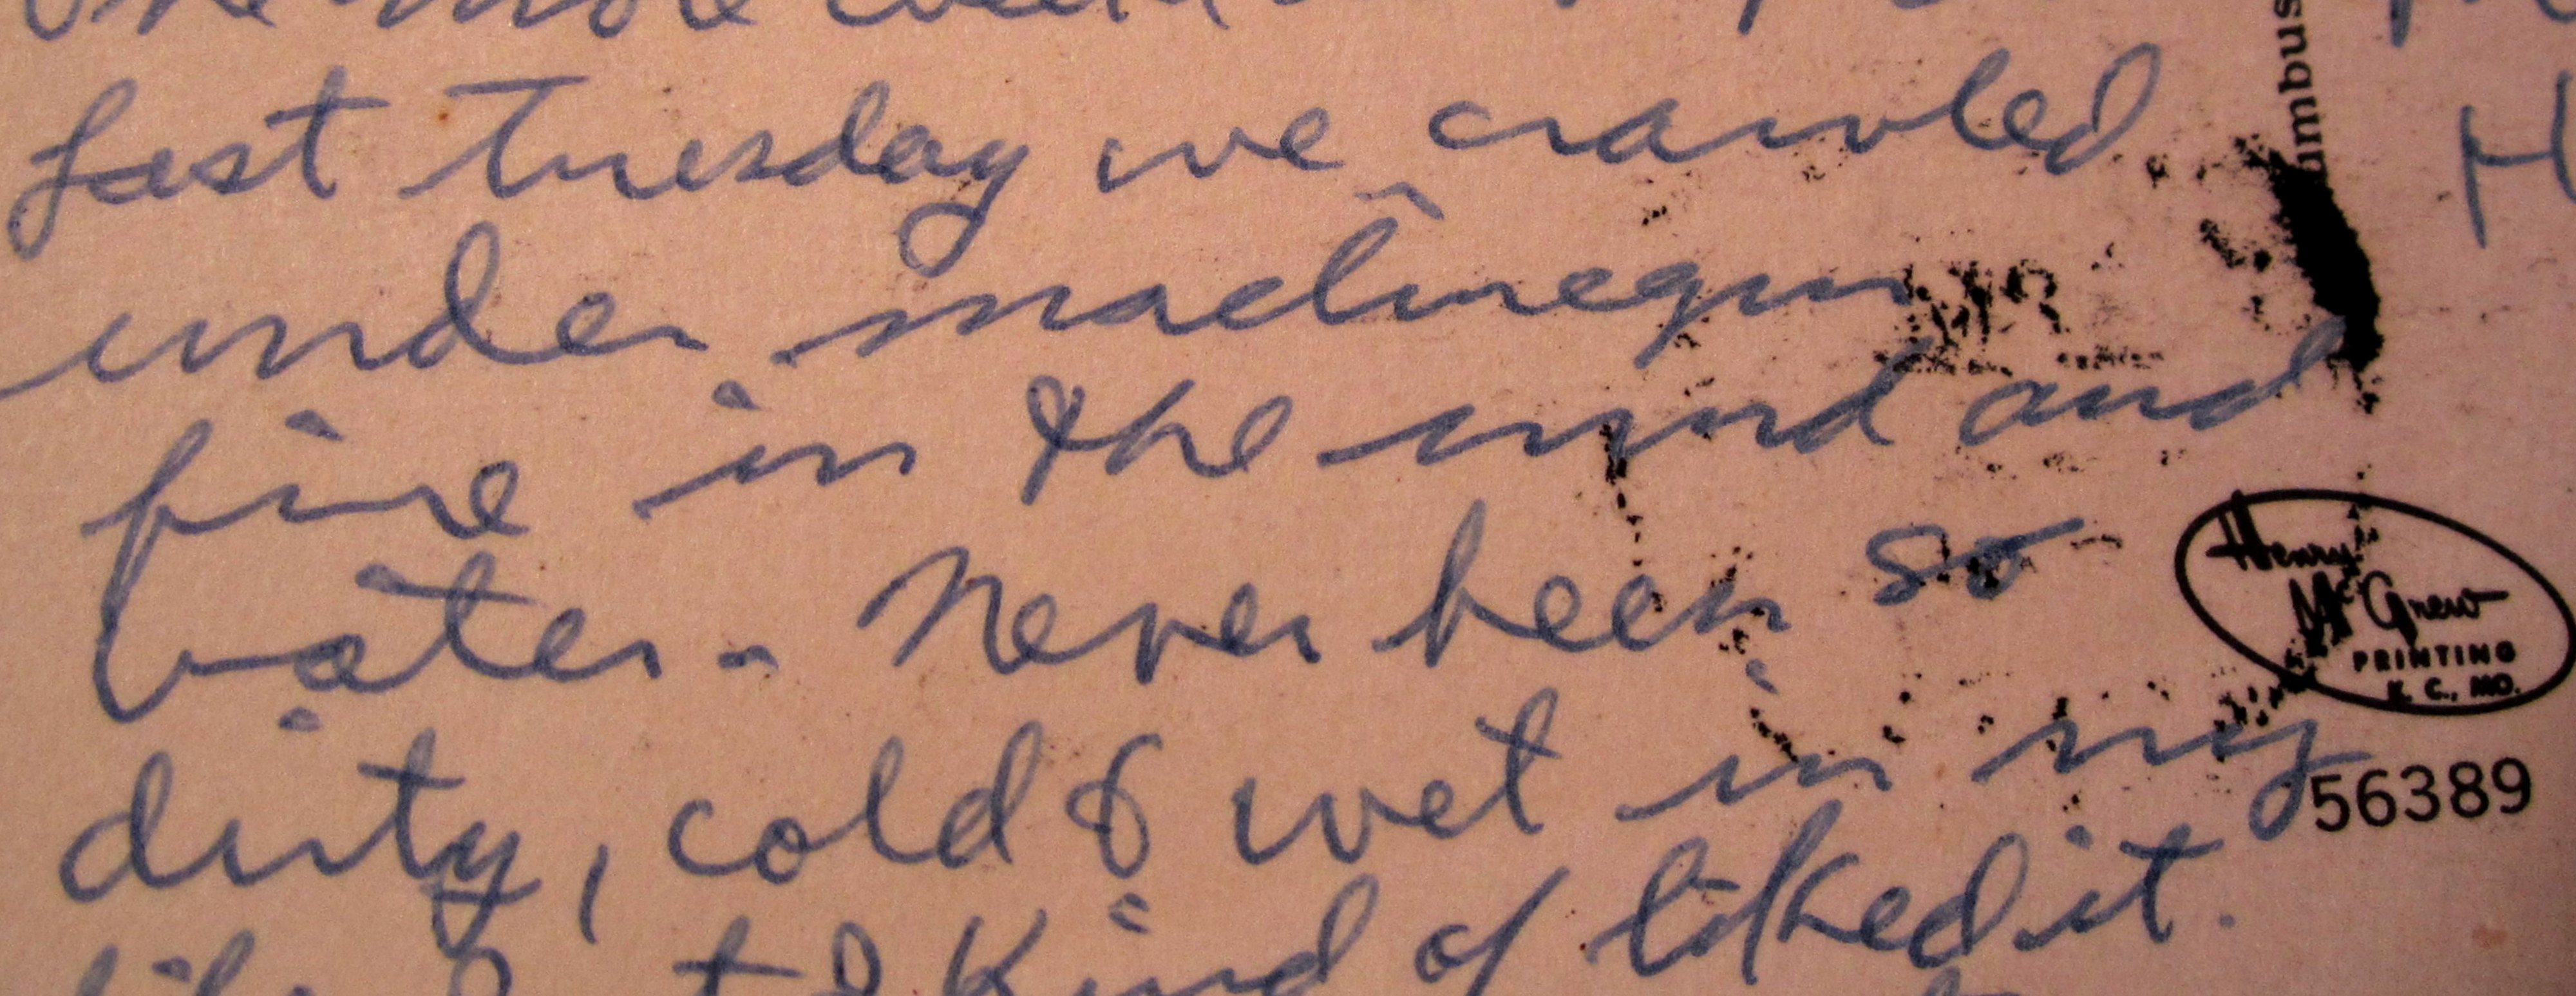 one more
Last Tuesday we crawled
under machinegun
fire in the mud and
water - Never been so
dirty, cold & wet in my
life But I kind of liked it.
umbus
H
Henry
McGrew
PRINTING
K. C., MO.
56389